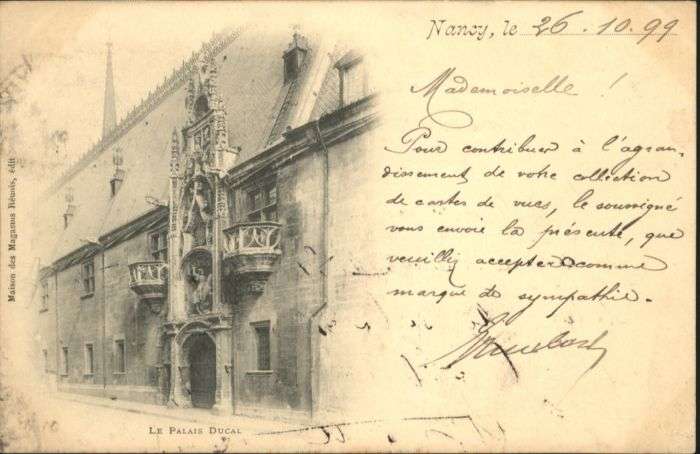 Nancy, le 26.10.99
Mademoiselle !
Pour contribuer à l'agran-
dissement de votre collection
de cartes de vues, le soussigné
vous envoie la présente, que
veuillez accepter comme
marque de sympathie.
LE PALAIS DUCAL
Maison des Magasins Réunis, édit